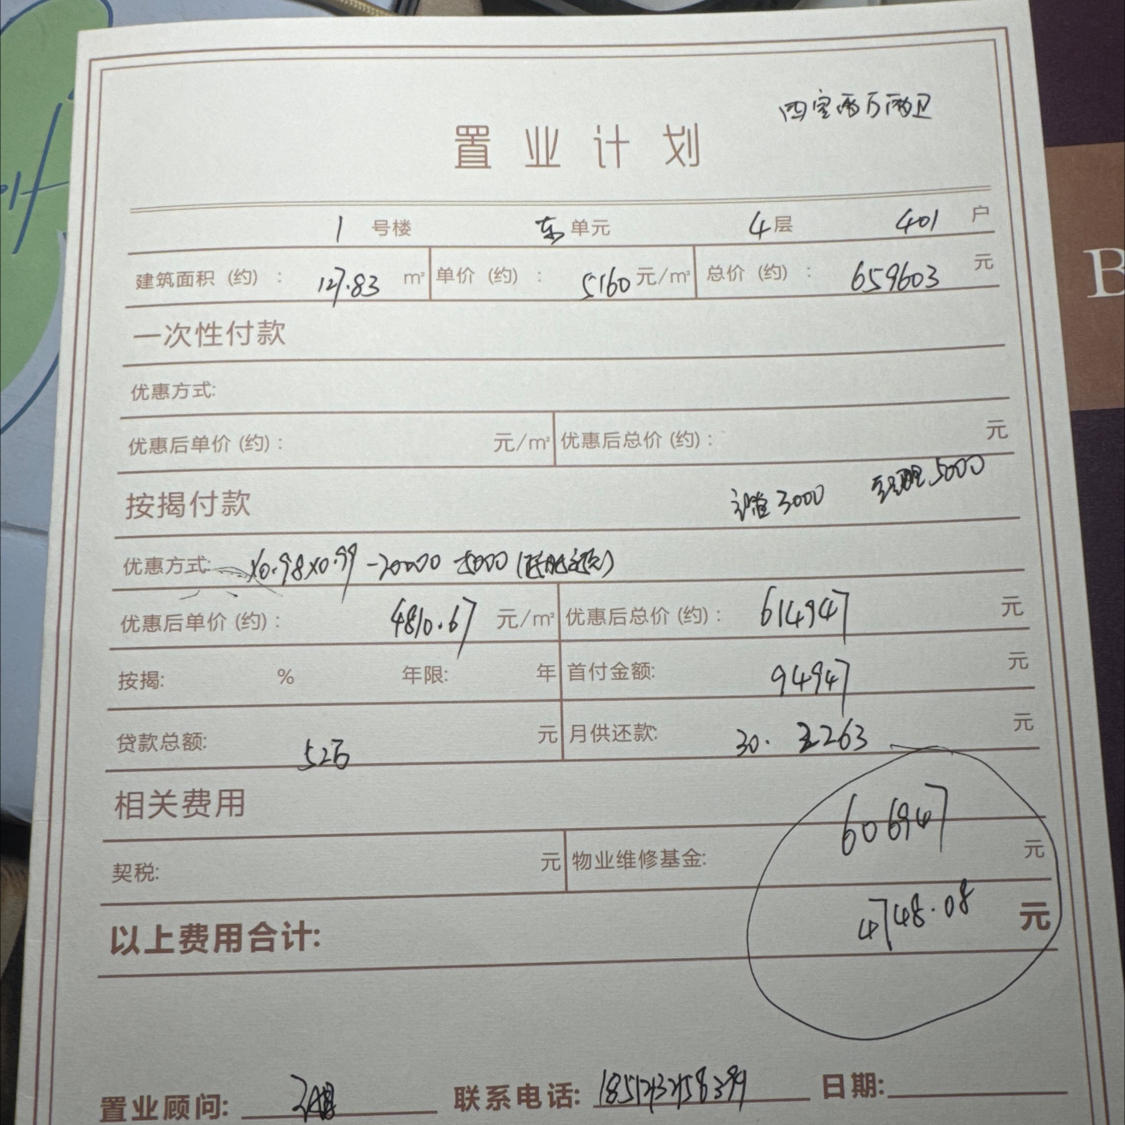 四室两厅两卫
置业计划
1 号楼 东 单元 4 层 401 户
建筑面积(约): 127.83 m² 单价(约): 5160 元/m² 总价(约): 659603 元
一次性付款
优惠方式:
优惠后单价(约): 元/m² 优惠后总价(约): 元
按揭付款 3000 经理5000
优惠方式: ×0.98×0.99 -20000 -5000
优惠后单价(约): 4810.67 元/m² 优惠后总价(约): 614947 元
按揭: % 年限: 年 首付金额: 94947 元
贷款总额: 52万 元 月供还款: 30. 2263 元
相关费用
606947
契税: 元 物业维修基金: 元
以上费用合计: 4748.08 元
置业顾问: 联系电话: 日期:
B